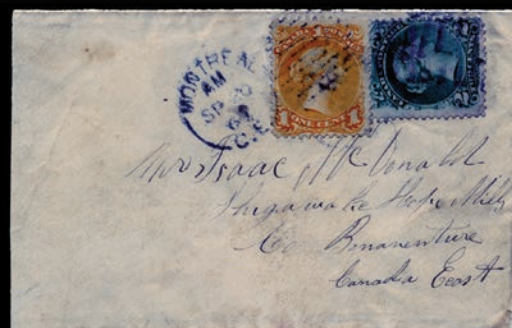 MONTREAL
AM
SP 20
C.E.
CANADA
1
ONE CENT
1
Mr Isaac McDonald
Shigawake Hope Mills
Co Bonaventure
Canada East